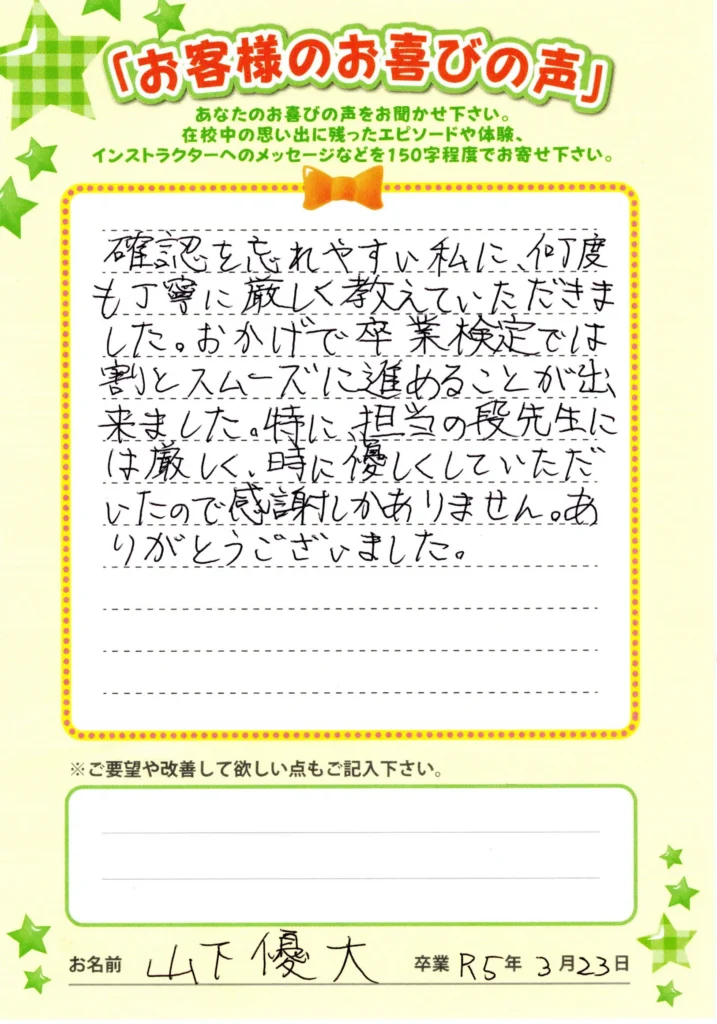 「お客様のお喜びの声」
あなたのお喜びの声をお聞かせ下さい。
在校中の思い出に残ったエピソードや体験、
インストラクターへのメッセージなどを150字程度でお寄せ下さい。
確認を忘れやすい私に、何度
も丁寧に厳しく教えていただきま
した。おかげで卒業検定では
割とスムーズに進めることが出
来ました。特に、担当の段先生に
は厳しく、時に優しくしていただ
いたので感謝しかありません。あ
りがとうございました。
※ご要望や改善して欲しい点もご記入下さい。
お名前 山下優大 卒業 R5年 3月23日